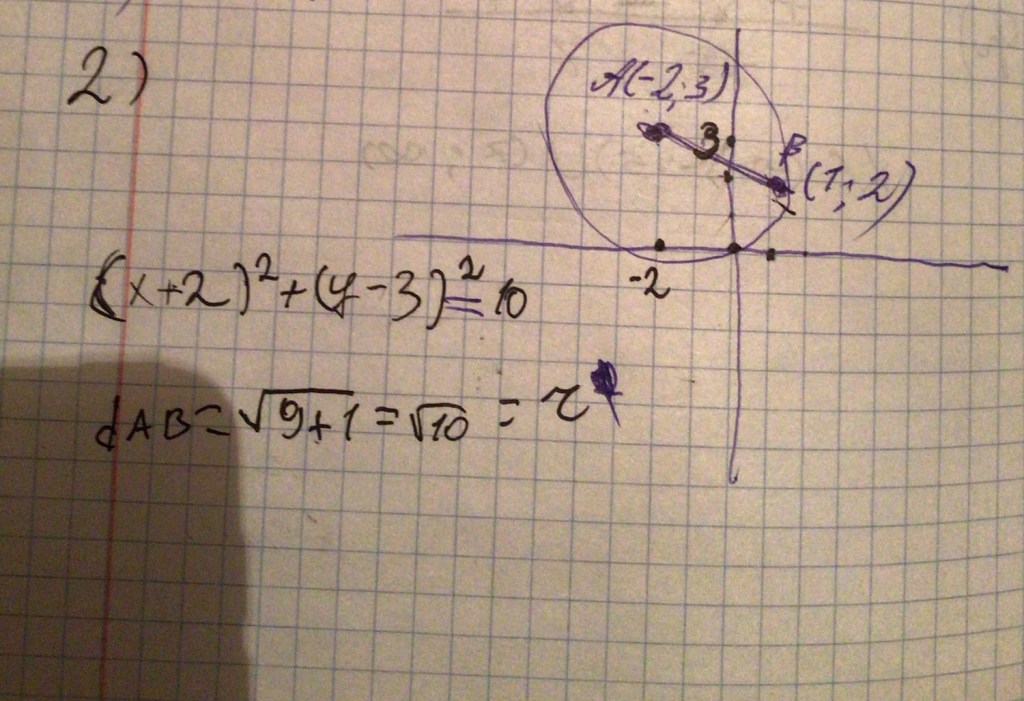 2)
A(-2;3)
3
B
(1;2)
-2
(x+2)²+(y-3)²=10
dAB=√9+1=√10=r